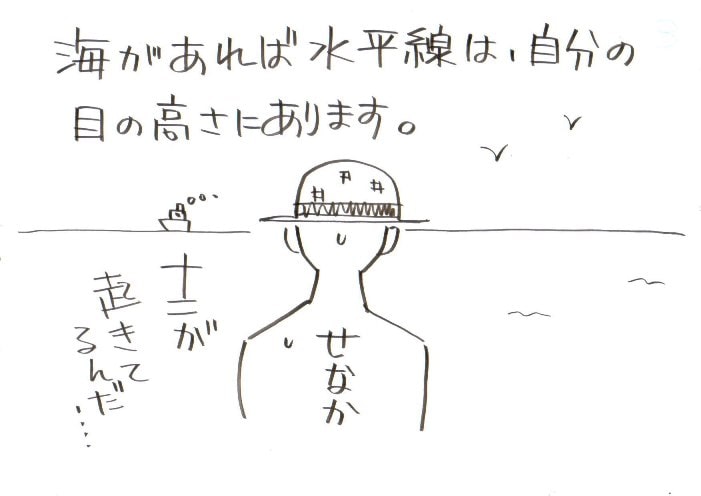 海があれば水平線は、自分の
目の高さにあります。
ナニが
起きて
るんだ…
せなか